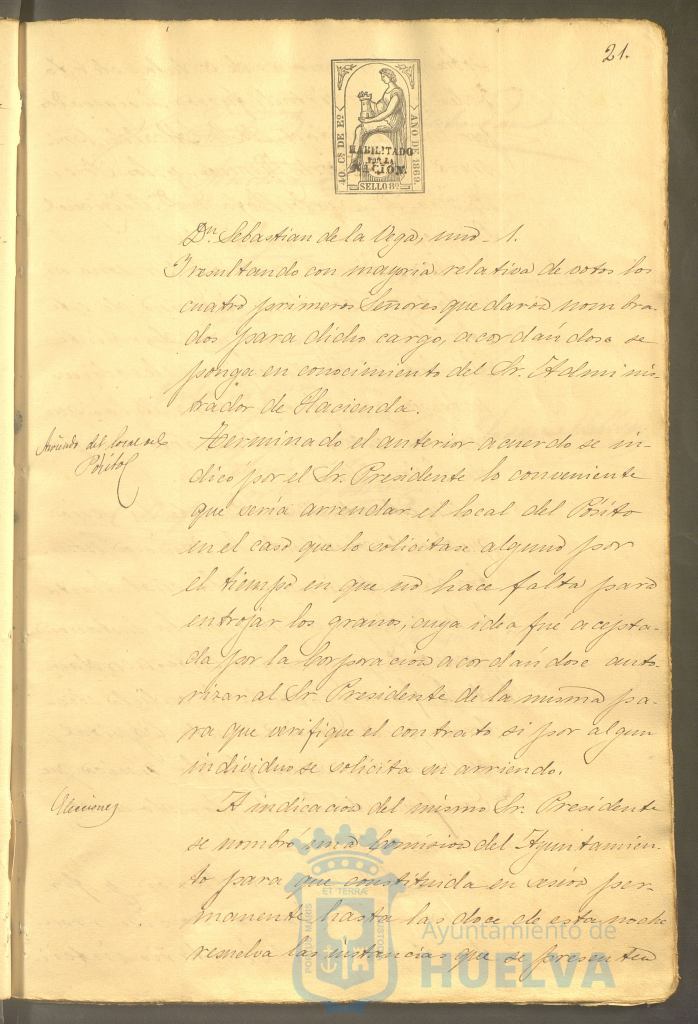 21.
40. Cs DE Eo.
AÑO DE 1869.
HABILITADO
POR LA
NACION.
SELLO 8º
Dn. Sebastian de la Vega, uno - 1.
I resultando con mayoria relativa de votos los
cuatro primeros Señores quedaron nombra-
dos para dicho cargo, acordandose se
ponga en conocimiento del Sr. Adminis-
trador de Hacienda.
del local del
Pósito
Terminado el anterior acuerdo se in-
dicó por el Sr. Presidente lo conveniente
que seria arrendar el local del Pósito
en el caso que lo solicitase alguno por
el tiempo en que no hace falta para
entrojar los granos, cuya idea fué acepta-
da por la Corporacion acordandose auto-
rizar al Sr. Presidente de la misma pa-
ra que verifique el contrato si por algun
individuo se solicita su arriendo.
Elecciones
A indicacion del mismo Sr. Presidente
se nombró una Comision del Ayuntamien-
to para que constituida en sesion per-
manente hasta las doce de esta noche
resuelva las instancias que se presenten
PORTUS MARIS
ET TERRAE
CUSTODIA
Ayuntamiento de
HUELVA